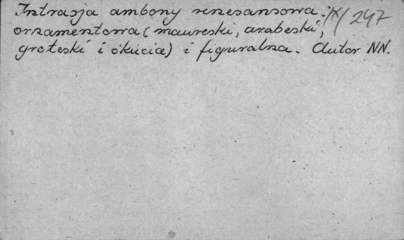 Intrasja ambony renesansowa: IX/247
ornamentowa (maureski, arabeski,
groteski i okucia) i figuralna. Autor NN.